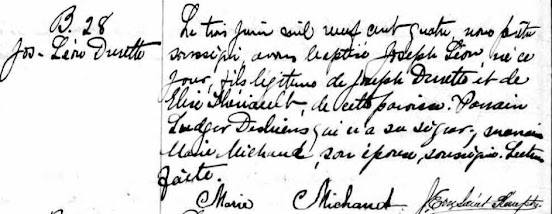 B. 28
Jos-Léon Durette
Le trois juin mil neuf cent quatre, nous prêtre
soussigné, avons baptisé Joseph Léon, né ce
jour, fils légitime de Joseph Durette et de
Elise Thériault, de cette paroisse. Parrain
Ludger Deschiens qui n'a su signer, marraine
Marie Michaud, son épouse, soussignée. Lecture
faite.
Marie Michaud.